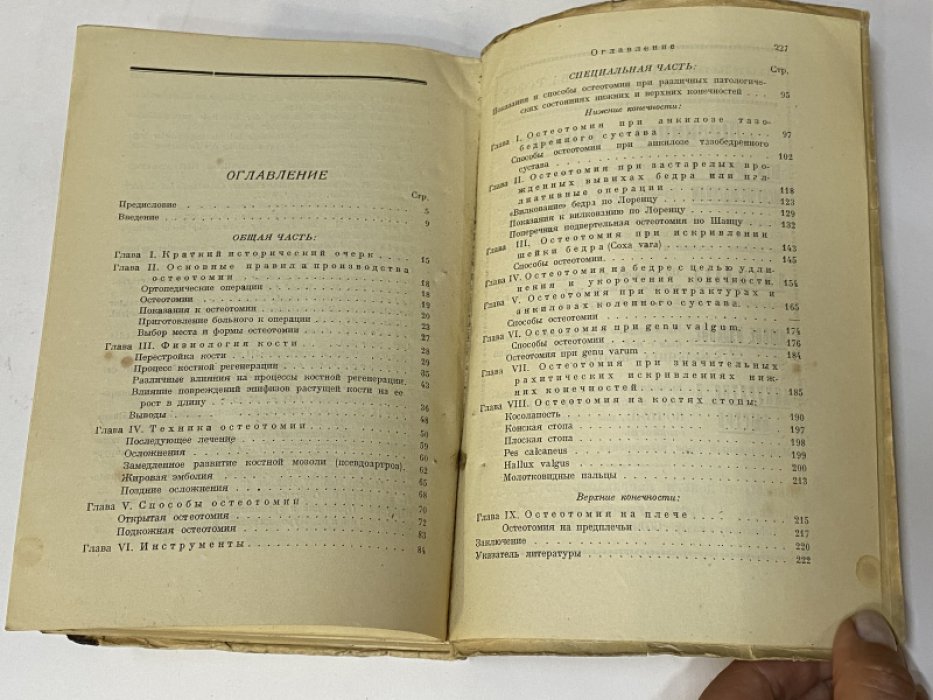 ОГЛАВЛЕНИЕ
Стр.
Предисловие . . . 5
Введение . . . 9
ОБЩАЯ ЧАСТЬ:
Глава I. Краткий исторический очерк . . . 15
Глава II. Основные правила производства
остеотомии . . . 18
Ортопедические операции . . . 18
Остеотомии . . . 19
Показания к остеотомии . . . 20
Приготовление больного к операции . . . 23
Выбор места и формы остеотомии . . . 27
Глава III. Физиология кости . . . 28
Перестройка кости . . . 29
Процесс костной регенерации . . . 35
Различные влияния на процессы костной регенерации. 43
Влияние повреждений эпифизов растущей кости на ее
рост в длину . . .
Выводы . . . 48
Глава IV. Техника остеотомии . . . 50
Последующее лечение . . . 59
Осложнения . . . 60
Замедленное развитие костной мозоли (псевдоартроз). 62
Жировая эмболия . . . 65
Поздние осложнения . . . 68
Глава V. Способы остеотомий . . . 70
Открытая остеотомия . . . 72
Подкожная остеотомия . . . 83
Глава VI. Инструменты . . . 84
Оглавление 227
СПЕЦИАЛЬНАЯ ЧАСТЬ:
Стр.
Показания и способы остеотомии при различных патологиче-
ских состояниях нижних и верхних конечностей . . . 95
Нижние конечности:
Глава I. Остеотомия при анкилозе тазо-
бедренного сустава . . . 97
Способы остеотомии при анкилозе тазобедренного
сустава . . . 102
Глава II. Остеотомия при застарелых вро-
жденных вывихах бедра или пал-
лиативные операции . . . 118
«Вилкование» бедра по Лоренцу . . . 123
Показания к вилкованию по Лоренцу . . . 129
Поперечная подвертельная остеотомия по Шанцу . . . 132
Глава III. Остеотомия при искривлении
шейки бедра (Coxa vara) . . . 143
Способы остеотомии. . . . 145
Глава IV. Остеотомия на бедре с целью удли-
нения и укорочения конечности. 154
Глава V. Остеотомия при контрактурах и
анкилозах коленного сустава. . . . 165
Способы остеотомии . . . —
Глава VI. Остеотомия при genu valgum. 174
Способы остеотомии . . . 176
Остеотомия при genu varum . . . 184
Глава VII. Остеотомия при значительных
рахитических искривлениях ниж-
них конечностей . . . 185
Глава VIII. Остеотомия на костях стопы:
Косолапость . . . 190
Конская стопа . . . 197
Плоская стопа . . . 198
Pes calcaneus . . . 199
Hallux valgus . . . 200
Молотковидные пальцы . . . 213
Верхние конечности:
Глава IX. Остеотомия на плече . . . 215
Остеотомия на предплечьи . . . 217
Заключение . . . 220
Указатель литературы . . . 222